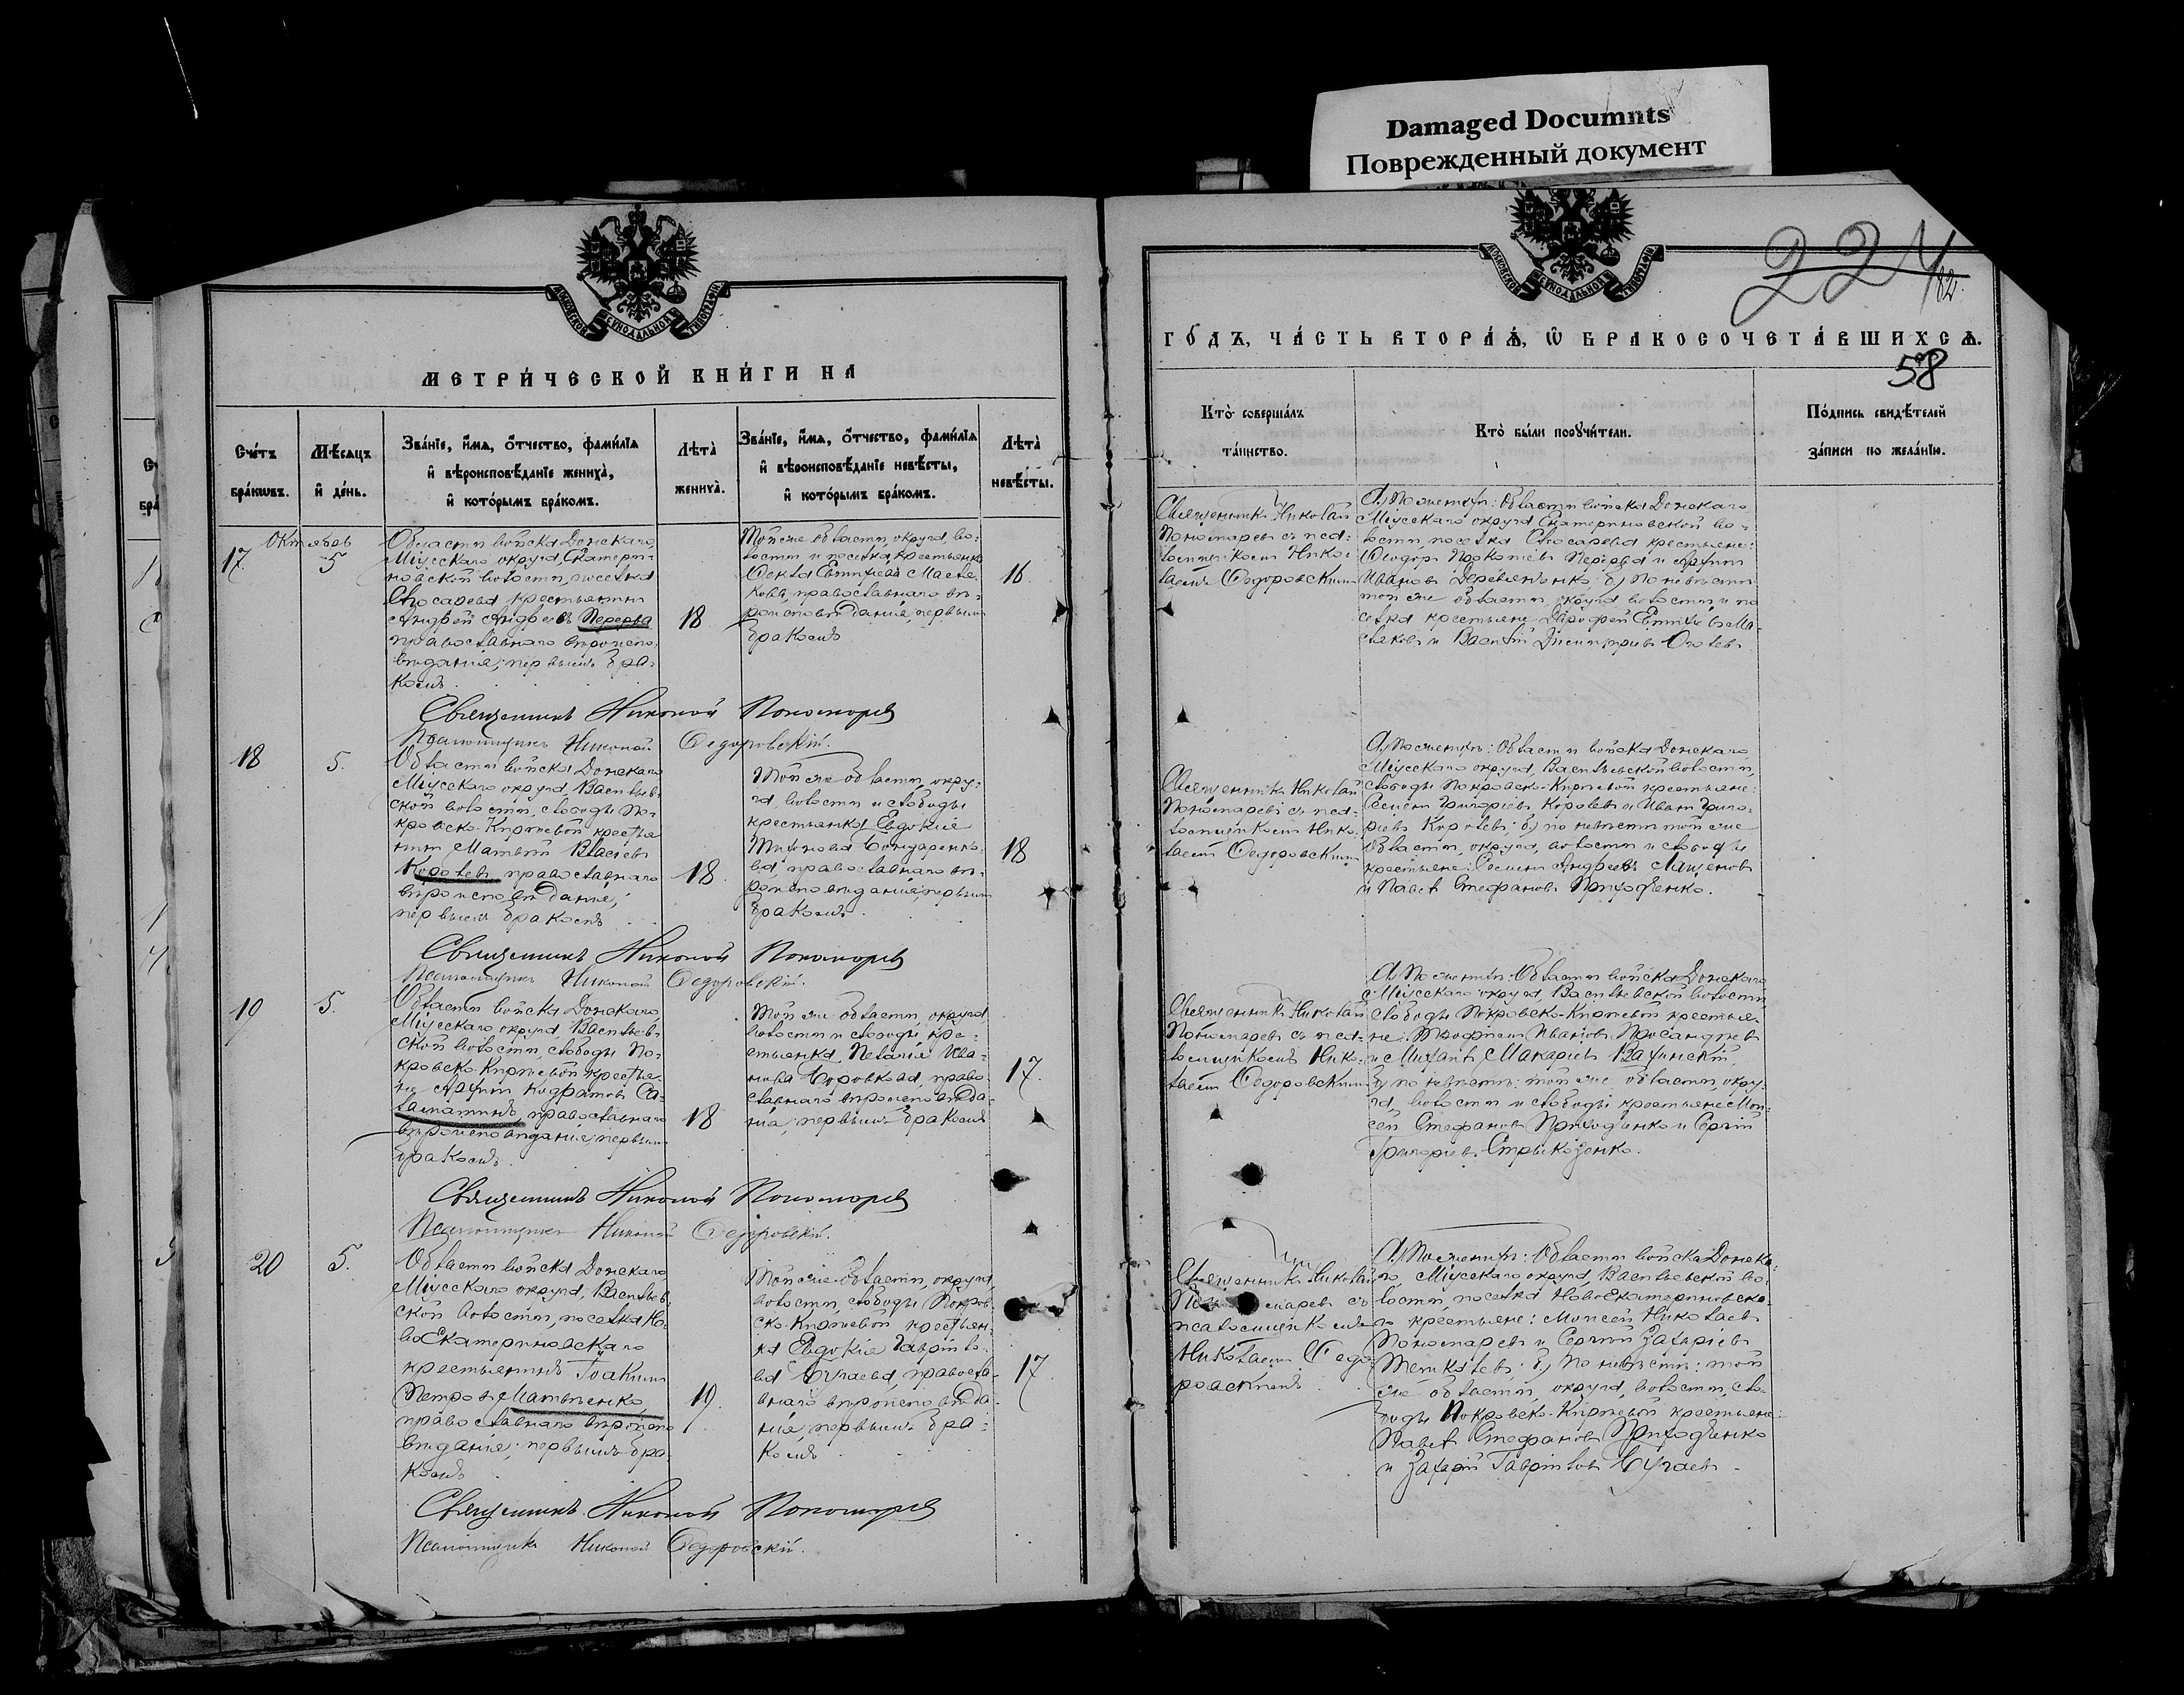 Damaged Documnts
Поврежденный документ
МОСКОВСКОЙ СѴНОДАЛЬНОЙ ТИПОГРАФІИ
МЕТРИ́ЧЕСКОЙ КНИ́ГИ НА
Сче́тъ бра́кωвъ.
Мѣ́сяцъ и҆ де́нь.
Зва́нїе, и҆́мѧ, ѻ҆́тчество, фами́лїѧ и҆ вѣроисповѣ́данїе жениха̀, и҆ кото́рымъ бра́комъ.
Лѣ́та̀ жениха̀.
Зва́нїе, и҆́мѧ, ѻ҆́тчество, фами́лїѧ и҆ вѣроисповѣ́данїе невѣ́сты, и҆ кото́рымъ бра́комъ.
Лѣ́та̀ невѣ́сты.
17
Октябрь
5
Области войска Донскаго,
Міусскаго округа, Екатери-
новской волости, поселка
Слюсарева крестьянинъ
Андрей Андреевъ Перерва
православнаго вѣроиспо-
вѣданія; первымъ бра-
комъ.
18
Той же области, округа, во-
лости и поселка, крестьянка
Ѳекла Емиліева Масле-
кова, православнаго вѣ-
роисповѣданія, первымъ
бракомъ
16.
Священникъ Николай Пономаревъ
Псаломщикъ Николай Ѳедоровскій.
18
5.
Области войска Донскаго
Міусскаго округа, Васильев-
ской волости, слободы По-
кровско-Кирѣевой крестья-
нинъ Матвѣй Власіевъ
Королевъ православнаго
вѣроисповѣданія;
первымъ бракомъ
18.
Той же области, окру-
га, волости и слободы
крестьянка Евдокія
Тихонова Бондаренко-
ва, православнаго вѣ-
роисповѣданія, первымъ
бракомъ.
18
Священникъ Николай Пономаревъ
Псаломщикъ Николай Ѳедоровскій.
19
5.
Области войска Донскаго,
Міусскаго округа, Васильев-
ской волости, слободы По-
кровско-Кирѣевой крестья-
православнаго
вѣроисповѣданія; первымъ
бракомъ.
18
Той же области, округа,
волости и слободы, кре-
стьянка, Пелагія Ива-
нова Боровкова, право-
славнаго вѣроисповѣда-
нія; первымъ бракомъ
17.
Священникъ Николай Пономаревъ
Псаломщикъ Николай Ѳедоровскій.
20
5.
Области войска Донскаго
Міусскаго округа, Васильев-
ской волости, поселка Но-
воЕкатериновскаго
крестьянинъ Іоакимъ
Петровъ Матвѣенко,
православнаго вѣроиспо-
вѣданія; первымъ бра-
комъ
19.
Той же области, округа,
волости, слободы Покров-
ско-Кирѣевой крестьян-
ка Евдокія Гаврило-
ва Бугаева, правосла-
внаго вѣроисповѣда-
нія, первымъ бра-
комъ
17.
Священникъ Николай Пономаревъ
Псаломщикъ Николай Ѳедоровскій.
224
82
МОСКОВСКОЙ СѴНОДАЛЬНОЙ ТИПОГРАФІИ
ГО́ДЪ, ЧА́СТЬ ВТОРА́Ѧ, Ѡ҆ БРАКОСОЧЕТА́ВШИХСѦ.
58
Кто̀ соверша́лъ та́инство.
Кто̀ бы́ли порꙋчи́тели.
По́дпись свидѣ́телей за́писи по жела́нїю.
Священникъ Николай
Пономаревъ съ пса-
ломщикомъ Нико-
лаемъ Ѳедоровскимъ
А) По женихѣ: Области войска Донскаго
Міусскаго округа Екатериновской во-
лости, поселка Слюсарева крестьяне:
Ѳеодоръ Прокопіевъ Перерва и
Ивановъ Деревянченко. б) По невѣстѣ:
той же области, округа, волости и по-
селка крестьяне Дорофей Емиліевъ Ма-
слаковъ и Василій Дмитріевъ
Священникъ Николай
Пономаревъ съ пса-
ломщикомъ Нико-
лаемъ Ѳедоровскимъ
А) По женихѣ: Области войска Донскаго
Міусскаго округа, Васильевской волости,
слободы Покровско-Кирѣевой крестьяне:
Семенъ Григоріевъ Королевъ и Иванъ Григо-
ріевъ Королевъ; б) по невѣстѣ: той же
области, округа, волости и слободы
крестьяне: Семенъ Андреевъ Лащеновъ
и Павелъ Стефановъ Приходченко.
Священникъ Николай
Пономаревъ съ пса-
ломщикомъ Нико-
лаемъ Ѳедоровскимъ
А) По женихѣ: Области войска Донскаго
Міусскаго округа, Васильевской волости
слободы Покровско-Кирѣевой крестья-
не: Трофимъ Ивановъ
и Михаилъ Макаріевъ
б) по невѣстѣ: той же области, окру-
га, волости и слободы крестьяне Мои-
сей Стефановъ Приходченко и Сергій
Григоріевъ
Священникъ Николай
Пономаревъ съ
псаломщикомъ
Николаемъ Ѳедо-
ровскимъ
А) По женихѣ: Области войска Донска-
го, Міусскаго округа, Васильевской во-
лости, поселка НовоЕкатериновска-
го крестьяне: Моисей Николаевъ
Пономаревъ и Сергій Захаріевъ
б) По невѣстѣ: той
же области, округа, волости, сло-
боды Покровско-Кирѣевой крестьяне:
Павелъ Стефановъ Приходченко
и Захарій Гавріиловъ Бугаевъ